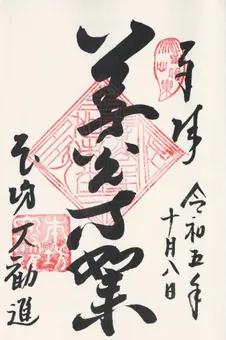 奉拝
令和五年
十月八日
善光寺如来
本坊 大勧進